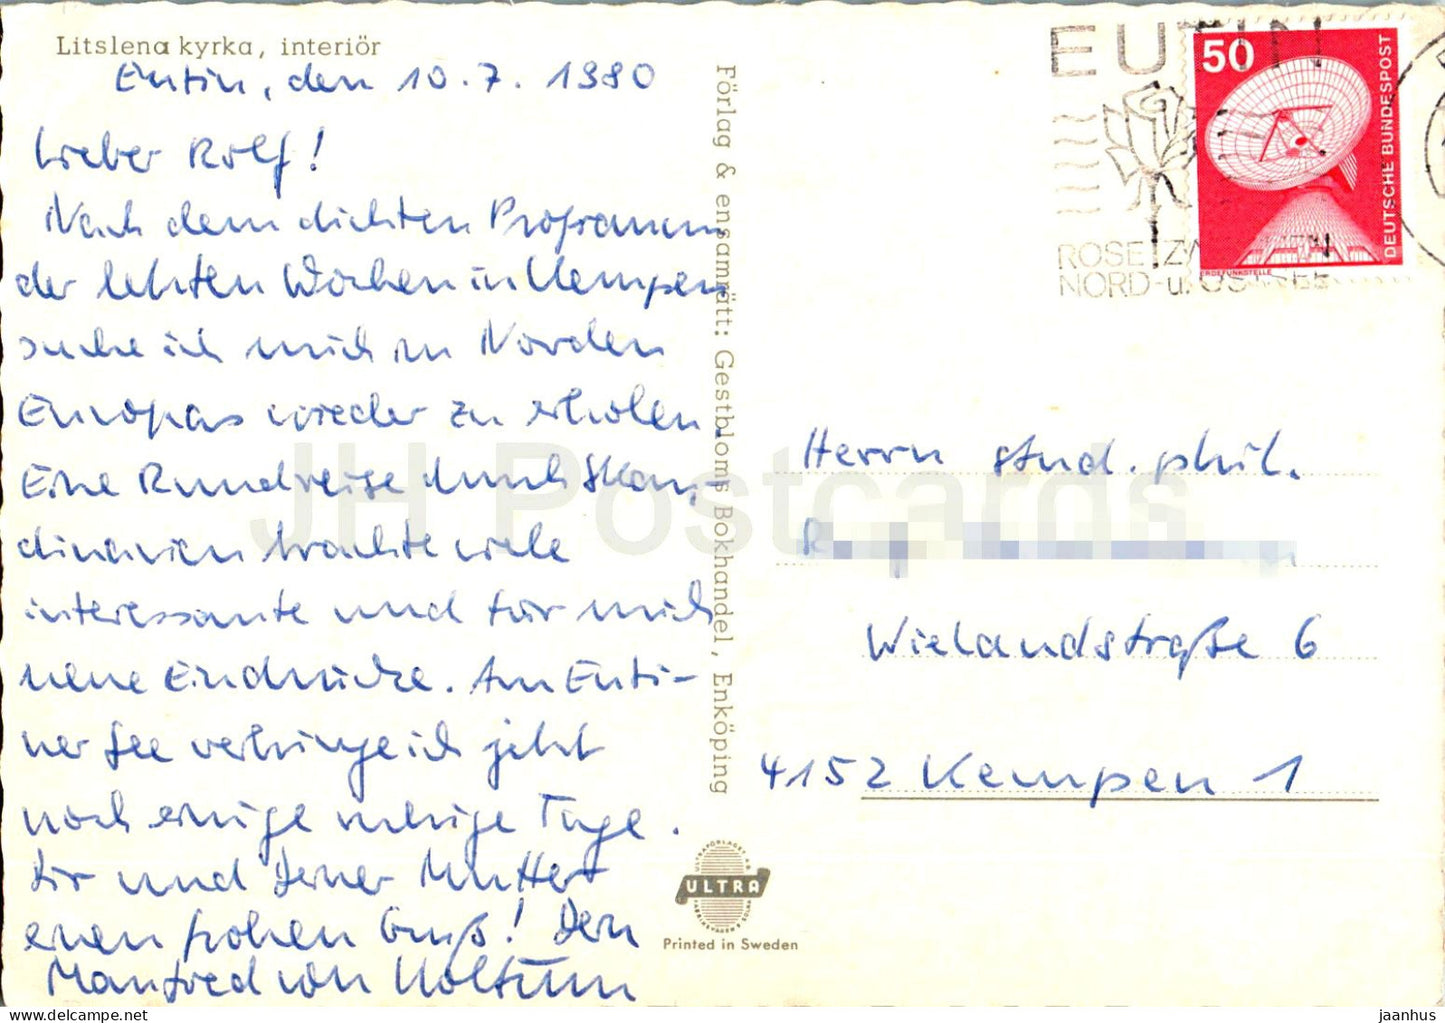 Litslena kyrka, interiör
Eutin, den 10.7.1980
Lieber Rolf!
Nach dem dichten Programm
der letzten Wochen in Kempen
suche ich mich im Norden
Europas wieder zu erholen.
Eine Rundreise durch Skan-
dinavien brachte viele
interessante und für mich
neue Eindrücke. Am Euti-
ner See verbringe ich jetzt
noch einige ruhige Tage.
Dir und Deiner Mutter
einen frohen Gruß! Dein
Manfred von Holtum
Förlag & ensamrätt: Gestbloms Bokhandel, Enköping
ULTRA
Printed in Sweden
EUTIN
NORD-u.
50
DEUTSCHE BUNDESPOST
ERDEFUNKSTELLE
Herrn stud. phil.
Wielandstraße 6
4152 Kempen 1
JH Postcards
jaanhus